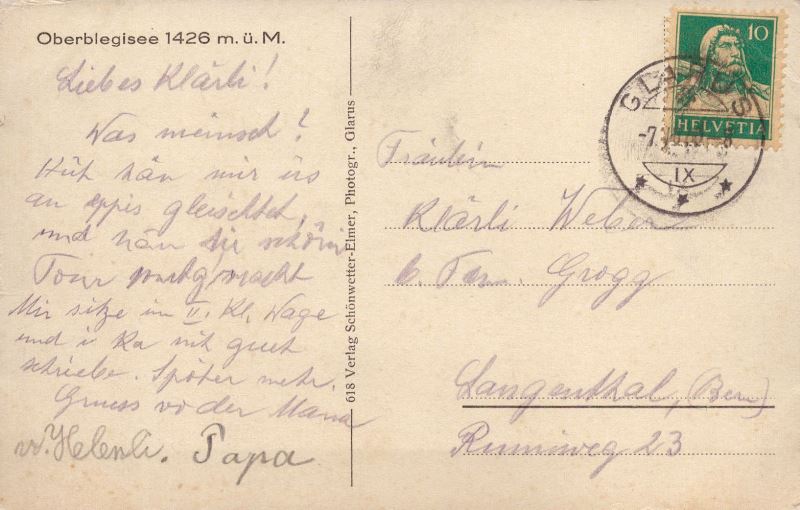 Oberblegisee 1426 m. ü. M.
Liebes Klärli!
Was meinsch?
Hüt hän mir üs
an eppis gleischtet,
und hän e schöni
Tour gmacht
Mir sitze im II. Kl. Wage
und i ka nit guet
schriebe. Später mehr.
Gruess vo der Mama
v. Helenli. Papa
618 Verlag Schönwetter-Elmer, Photogr., Glarus
10
HELVETIA
GLARUS
-7.
IX
Fräulein
Klärli Weber
b. Fam. Grogg
Langenthal, (Bern)
Rumiweg 23